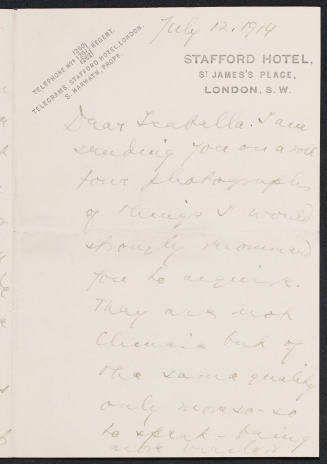 July 12. 1914
TELEPHONE Nos 1200 1201 1202 REGENT.
TELEGRAMS, STAFFORD HOTEL, LONDON.
S. HARWATH, PROPR.
STAFFORD HOTEL,
ST JAMES'S PLACE,
LONDON, S.W.
Dear Isabella. I am
sending you on a roll
four photographs
of things I would
strongly recommend
you to acquire.
They are not
Chinese but of
the same quality
only more so - so
to speak - being